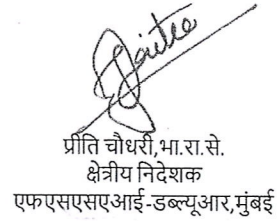 प्रीति चौधरी,भा.रा.से.
क्षेत्रीय निदेशक
एफएसएसएआई-डब्ल्यूआर,मुंबई